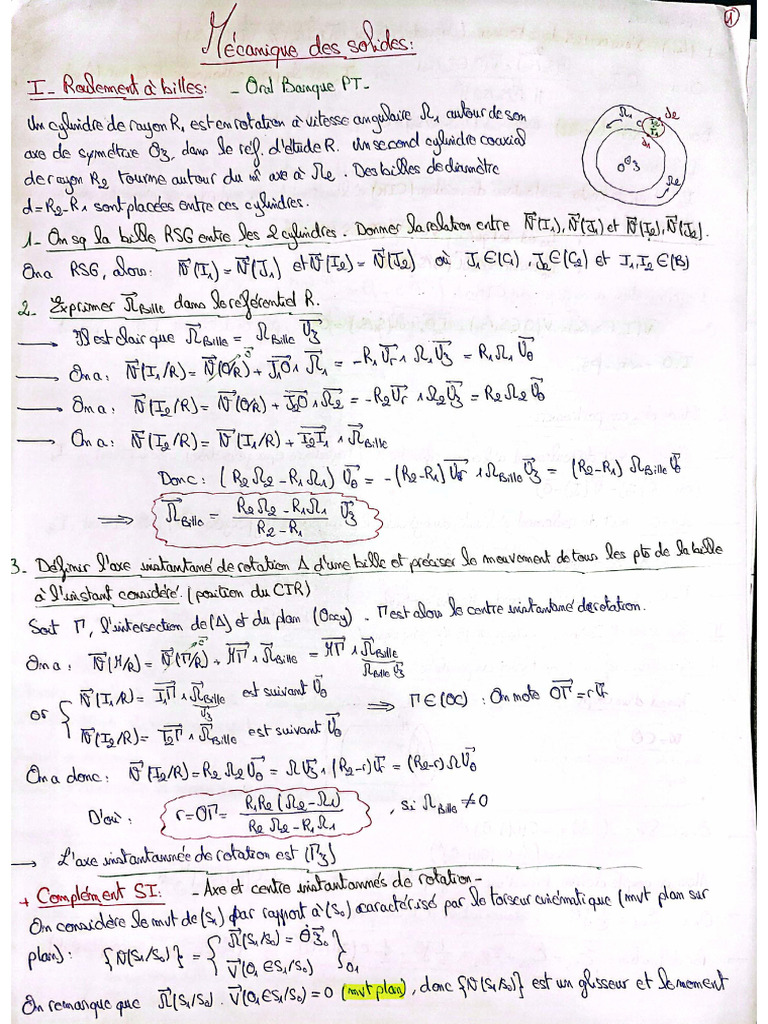 ①
Mécanique des solides:
I - Roulement à billes: - Oral Banque PT -
Un cylindre de rayon R₁ est en rotation à vitesse angulaire Ω₁ autour de son
axe de symétrie Oz, dans le réf. d'étude R. Un second cylindre coaxial
de rayon R₂ tourne autour du m̂ axe à Ω₂. Des billes de diamètre
d=R₂-R₁ sont placées entre ces cylindres.
Ω₁ J₂ C I₂ I₁ J₁ O z Ω₂
1- On sq la bille RSG entre les 2 cylindres. Donner la relation entre V⃗(I₁), V⃗(J₁) et V⃗(I₂), V⃗(J₂).
On a RSG, alors: V⃗(I₁) = V⃗(J₁) et V⃗(I₂) = V⃗(J₂) où J₁∈(C₁), J₂∈(C₂) et I₁, I₂∈(B)
2- Exprimer Ω⃗Bille dans le référentiel R.
→ Il est clair que Ω⃗Bille = ΩBille U⃗z
→ On a: V⃗(I₁/R) = V⃗(O/R) + J₁O⃗ ∧ Ω⃗₁ = -R₁U⃗r ∧ Ω₁U⃗z = R₁Ω₁ U⃗θ
→ On a: V⃗(I₂/R) = V⃗(O/R) + J₂O⃗ ∧ Ω⃗₂ = -R₂U⃗r ∧ Ω₂U⃗z = R₂Ω₂ U⃗θ
→ On a: V⃗(I₂/R) = V⃗(I₁/R) + I₂I₁⃗ ∧ Ω⃗Bille
Donc: (R₂Ω₂ - R₁Ω₁) U⃗θ = -(R₂-R₁)U⃗r ∧ ΩBille U⃗z = (R₂-R₁) ΩBille U⃗θ
⟹ Ω⃗Bille = (R₂Ω₂ - R₁Ω₁)/(R₂ - R₁) U⃗z
3- Définir l'axe instantané de rotation Δ d'une bille et préciser le mouvement de tous les pts de la bille
à l'instant considéré. (position du CIR)
Soit Γ, l'intersection de (Δ) et du plan (Oxy). Γ est alors le centre instantané de rotation.
On a: V⃗(M/R) = V⃗(Γ/R) + MΓ⃗ ∧ Ω⃗Bille = MΓ⃗ ∧ Ω⃗Bille
ΩBille U⃗z
or { V⃗(I₁/R) = I₁Γ⃗ ∧ Ω⃗Bille est suivant U⃗θ
U⃗z
V⃗(I₂/R) = I₂Γ⃗ ∧ Ω⃗Bille est suivant U⃗θ
⟹ Γ∈(OC) : On note OΓ⃗ = r U⃗r
On a donc: V⃗(I₂/R) = R₂Ω₂U⃗θ = ΩU⃗z ∧ (R₂-r)U⃗r = (R₂-r)ΩU⃗θ
D'où: r = OΓ = R₁R₂(Ω₂ - Ω₁)/(R₂Ω₂ - R₁Ω₁) , si ΩBille ≠ 0
→ L'axe instantannée de rotation est (Γz)
+ Complément SI: - Axe et centre instantannés de rotation -
On considère le mvt de (S₁) par rapport à (S₀) caractérisé par le torseur cinématique (mvt plan sur
plan): {V(S₁/S₀)} = { Ω⃗(S₁/S₀) = θ̇ z⃗₀
V⃗(O₁∈S₁/S₀) }O₁
On remarque que Ω⃗(S₁/S₀) . V⃗(O₁∈S₁/S₀) = 0 (mvt plan), donc {V(S₁/S₀)} est un glisseur et le moment